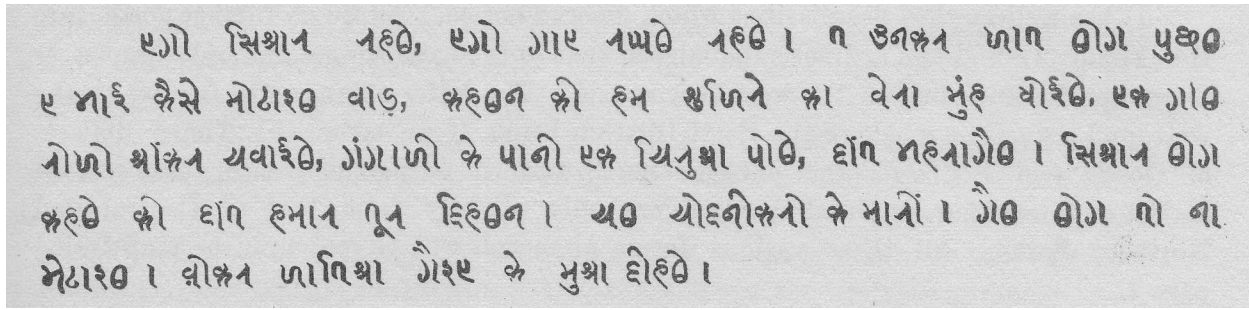 𑂉𑂏𑂷 𑂮𑂱𑂄𑂩 𑂩𑂯𑂪𑂵, 𑂉𑂏𑂷 𑂏𑂰𑂉 𑂩𑂎𑂪𑂵 𑂩𑂯𑂪𑂵 𑃀 𑂞 𑂇𑂢𑂍𑂩 𑂔𑂰𑂞 𑂪𑂷𑂏 𑂣𑂳𑂓𑂪
𑂉 𑂦𑂰𑂆 𑂍𑂶𑂮𑂵 𑂧𑂷𑂗𑂰𑂅𑂪 𑂥𑂰𑂚, 𑂍𑂯𑂪𑂢 𑂍𑂲 𑂯𑂧 𑂤𑂳𑂔𑂱𑂩𑂵 𑂍𑂰 𑂥𑂵𑂩𑂰 𑂧𑂳𑂁𑂯 𑂡𑂷𑂆𑂪𑂵. 𑂉𑂍 𑂏𑂰𑂪
𑂩𑂷𑂔𑂲 𑂄𑂁𑂍𑂩 𑂒𑂥𑂰𑂆𑂪𑂵, 𑂏𑂁𑂏𑂰𑂔𑂲 𑂍𑂵 𑂣𑂰𑂢𑂲 𑂉𑂍 𑂒𑂱𑂩𑂳𑂄 𑂣𑂲𑂪𑂵, 𑂠𑂰𑂁𑂞 𑂦𑂯𑂩𑂰𑂏𑂶𑂪 𑃀 𑂮𑂱𑂄𑂩 𑂪𑂷𑂏
𑂍𑂯𑂪𑂵 𑂍𑂲 𑂠𑂰𑂁𑂞 𑂯𑂧𑂰𑂩 𑂞𑂴𑂩 𑂠𑂱𑂯𑂪𑂢 𑃀 𑂒𑂪 𑂒𑂷𑂠𑂢𑂲𑂍𑂩𑂲 𑂍𑂵 𑂧𑂰𑂩𑂲𑂁 𑃀 𑂏𑂶𑂪 𑂪𑂷𑂏 𑂞𑂷 𑂢𑂰
𑂦𑂵𑂗𑂰𑂅𑂪 𑃀 𑂋𑂍𑂩 𑂔𑂰𑂞𑂱𑂄 𑂏𑂶𑂅𑂉 𑂍𑂵 𑂧𑂳𑂄 𑂠𑂲𑂯𑂪𑂵 𑃀